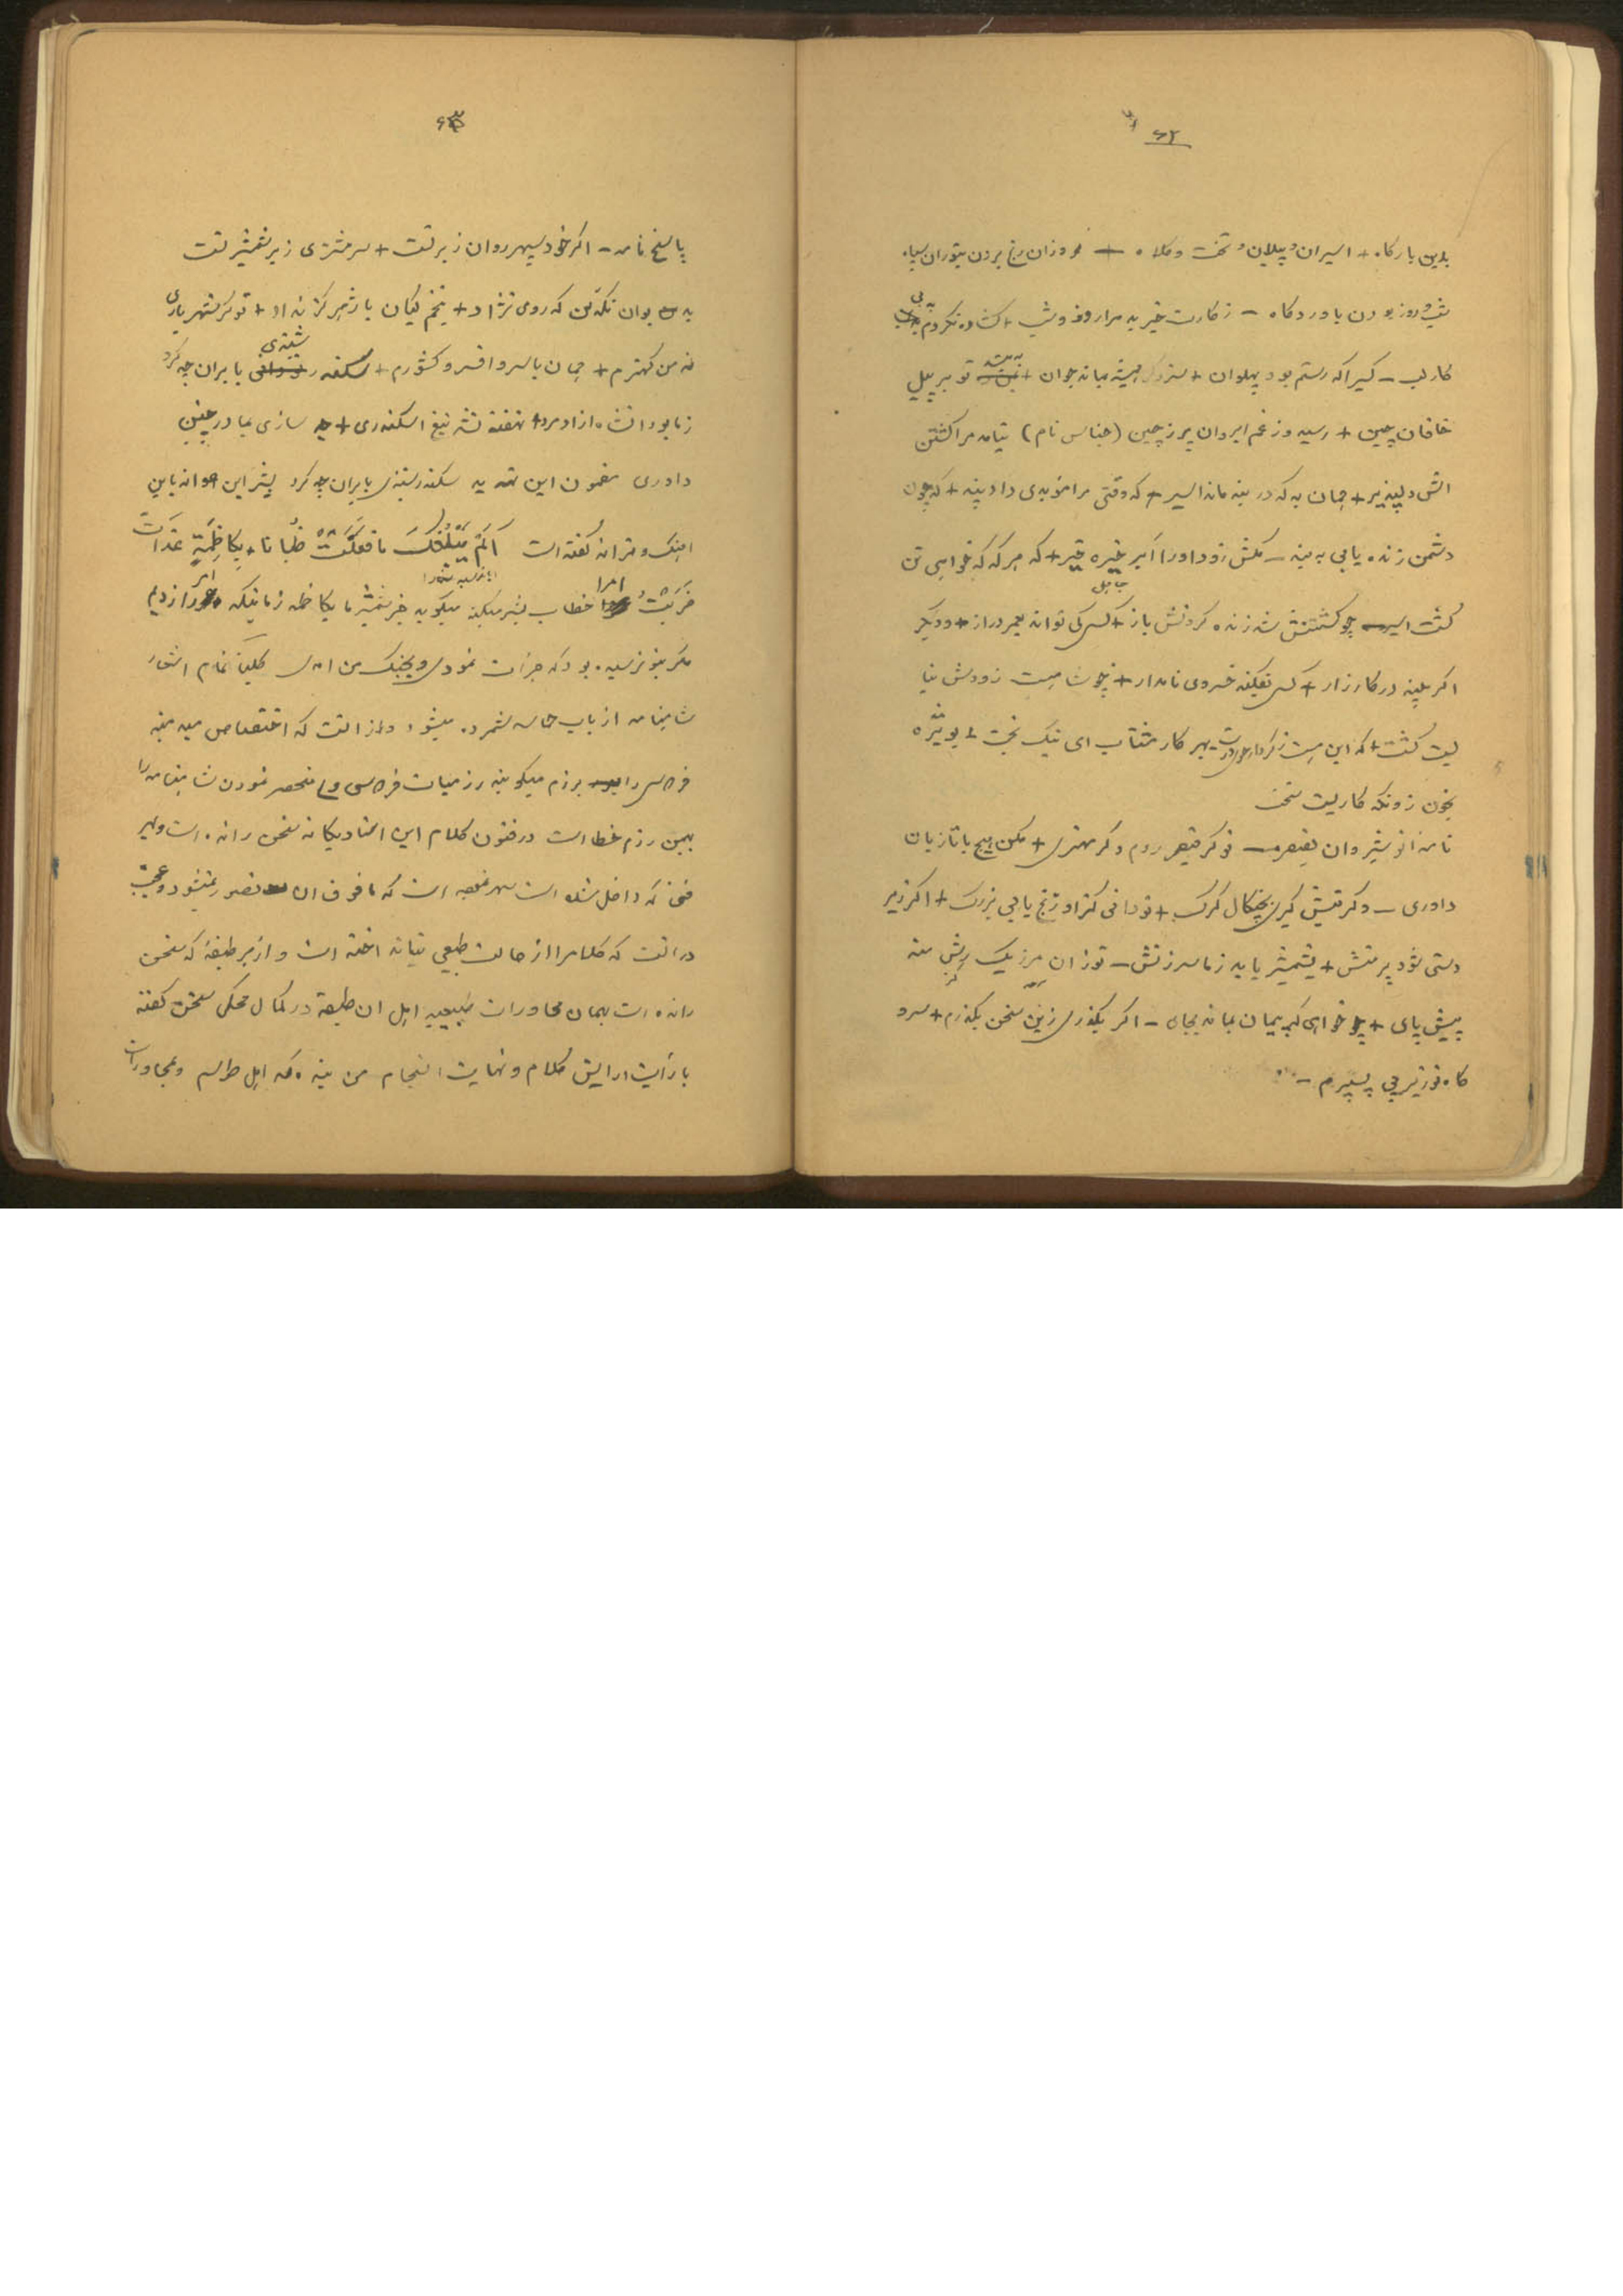 ۶۲
بدین بارکاه + اسیران و پیلان و تخت و کلاه + فروزان رنج بردن بتوران سپاه
شب و روز بودن باوردکاه – زکارت خبر بد مرا روز و شب + کشاده نکردم به بی
کار لب – کسیرا که رستم بود پهلوان + سزد کر همیشه بماند جوان + تو بر پیل
خاقان چین + رسید و ز غم ابروان پر ز چین (جناس تام) نباید مرا کشتن
دلپذیر + جهان به که در بند ماند اسیر + که وقتی مرا موبدی داد پند + که چون
دشمن زنده یابی به بند – مکش زود او را اکر خیره خیر + که هر که که خواهی تن
کشت اسیر چو کشتنش شد زنده کردنش باز + کسی کی تواند بعمر دراز + و دیکر
اکر بلند در کارزار + کس نفکند خسروی نامدار + زودش نبا
یست کشت + که این هست بهر کار مشتاب ای نیک بخت + بویژه
بخون زونکه کاریست سخت
نامه انوشیروان بقیصر – تو کر قیصر روم و کر مهتری + مکن هیچ با تازیان
داوری – و کر میش کیری بچنکال کرک + تو دانی کزاو رنج یابی بزرک + اکر زیر
دستی شود بر منش + بشمشیر یابد زما سرزنش – تو زان مرز یک رش منه
پیش پای + چو خواهی که پیمان بماند بجای – اکر بکذری زین سخن بکذرم + سر و
کاه تو زیر پی بسپرم –
۶۳
پاسخ نامه – اکر خود سپهر روان زیر تست + سر مشتری زیر شمشیر تست
به دیوان نکه کن که رومی نژاد + بتخم کیان باژ هرکز نداد + تو کر شهریاری
نه من کهترم + جهان با سر و افسر و کشورم + سکندر شنیدی بایران چه کرد
ز ما بود آنشاه آزاد مرد + نهفته نشد تیغ اسکندری + چه سازی بما در چنین
داوری مضمون این که به سکندر شنیدی بایران چه کرد بشر ابن عوانه باین
اهنک و ترانه کفته است اَلَمْ یَبْلُغْکَ مَا فَعَلَتْ ظُبَانَا بِکَاظِمَةٍ غَدَاةَ
ضَرَبْتُ عمرا خطاب بشیر میکند میکوید خبر شمشیر ما بکاظمه زمانیکه عمرو را زدیم
مکر بتو نرسیده بود که جرات نمودی و بجنک من امدی کلیتا تمام اشعار
شاهنامه از باب حماسه شمرده میشود و از آنست که اختصاص میدهند
فردوسی را برزم میکویند رزمیات فردوسی و منحصر نمودن شاهنامه را
بهمین رزم خطا است در فنون کلام این استاد یکانه سخن رانده است و بهر
فنی که داخل شده است سهل ممتنعیه است که مافوق آن تصور نمیشود و عجب
در آنست که کلام را از حالت طبیعی نیانداخته است و از هر طبقهٔ که سخن
رانده است بهمان محاورات طبیعیه اهل ان طبقه در کمال محکی سخن کفته
با رأیت آرایش کلام و نهایت انسجام من بنده که اهل طوسم و بمحاورات